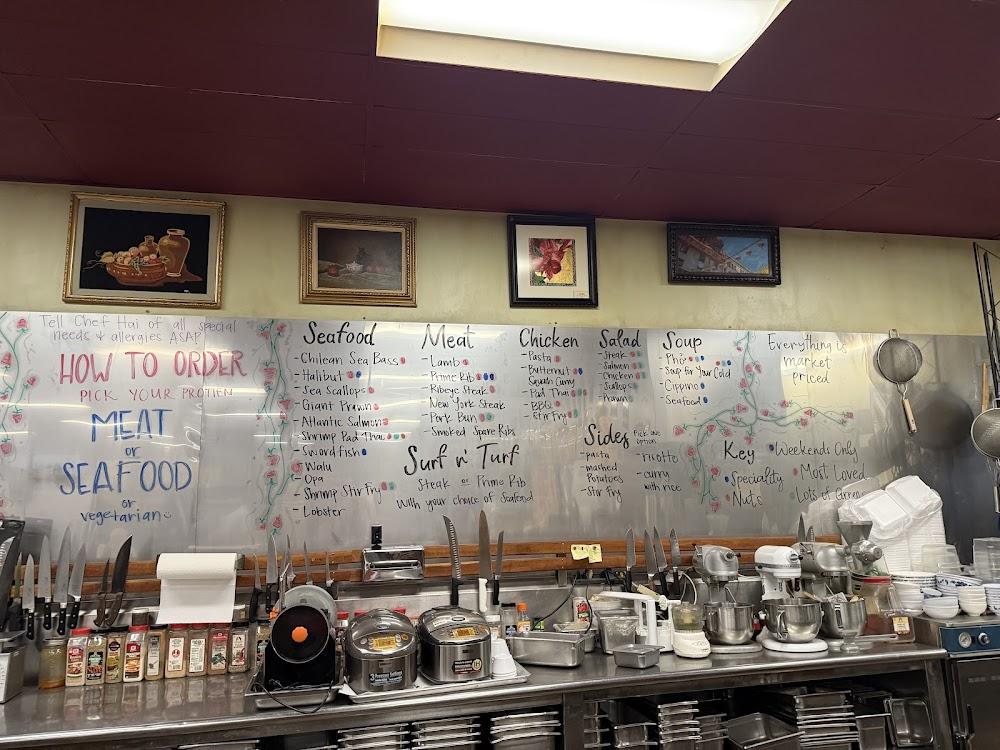 Tell Chef Hai of all special
needs & allergies ASAP
HOW TO ORDER
PICK YOUR PROTIEN
MEAT
or
SEAFOOD
or
vegetarian
Seafood
- Chilean Sea Bass
- Halibut
- Sea Scallops
- Giant Prawn
- Atlantic Salmon
- Shrimp Pad Thai
- Swordfish
- Walu
- Opa
- Shrimp Stir Fry
- Lobster
Meat
- Lamb
- Prime Rib
- Ribeye Steak
- New York Steak
- Pork Bun
- Smoked Spare Ribs
Chicken
- Pasta
- Butternut
Squash Curry
- Pad Thai
- BBQ
- Stir Fry
Salad
- Steak
- Salmon
- Chicken
- Scallops
- Prawn
Soup
- Pho
- Soup for Your Cold
- Cippino
- Seafood
Everything is
market
priced
Surf n' Turf
Steak or Prime Rib
with your choice of Seafood
Sides Pick one
option
- pasta
- mashed
Potatoes
- Stir Fry
- risotto
- curry
with rice
Key
Weekends Only
Speciality
Most Loved
Nuts
Lots of Green